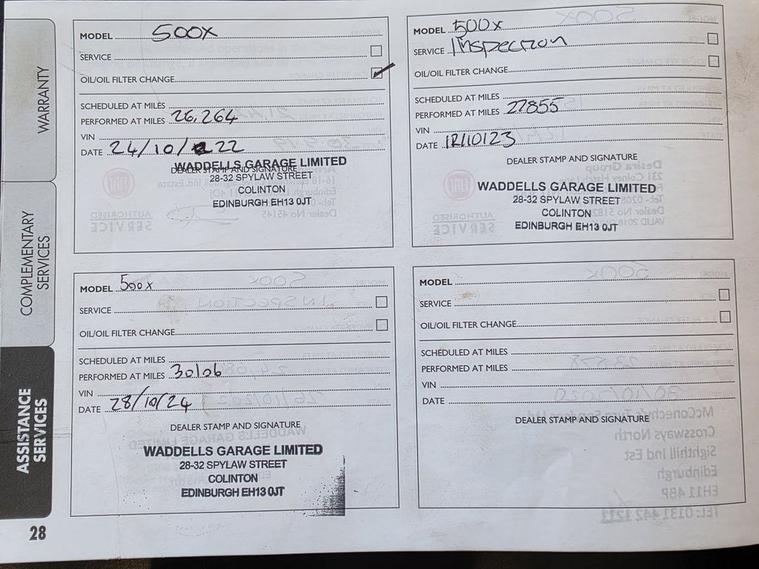 WARRANTY
COMPLEMENTARY
SERVICES
ASSISTANCE
SERVICES
28
MODEL 500X
SERVICE
OIL/OIL FILTER CHANGE
SCHEDULED AT MILES
PERFORMED AT MILES 26,264
VIN
DATE 24/10/22
DEALER STAMP AND SIGNATURE
WADDELLS GARAGE LIMITED
28-32 SPYLAW STREET
COLINTON
EDINBURGH EH13 0JT
MODEL 500x
SERVICE Inspection
OIL/OIL FILTER CHANGE
SCHEDULED AT MILES
PERFORMED AT MILES 27855
VIN
DATE 12/10/23
DEALER STAMP AND SIGNATURE
WADDELLS GARAGE LIMITED
28-32 SPYLAW STREET
COLINTON
EDINBURGH EH13 0JT
MODEL 500x
SERVICE
OIL/OIL FILTER CHANGE
SCHEDULED AT MILES
PERFORMED AT MILES 30106
VIN
DATE 28/10/24
DEALER STAMP AND SIGNATURE
WADDELLS GARAGE LIMITED
28-32 SPYLAW STREET
COLINTON
EDINBURGH EH13 0JT
MODEL
SERVICE
OIL/OIL FILTER CHANGE
SCHEDULED AT MILES
PERFORMED AT MILES
VIN
DATE
DEALER STAMP AND SIGNATURE